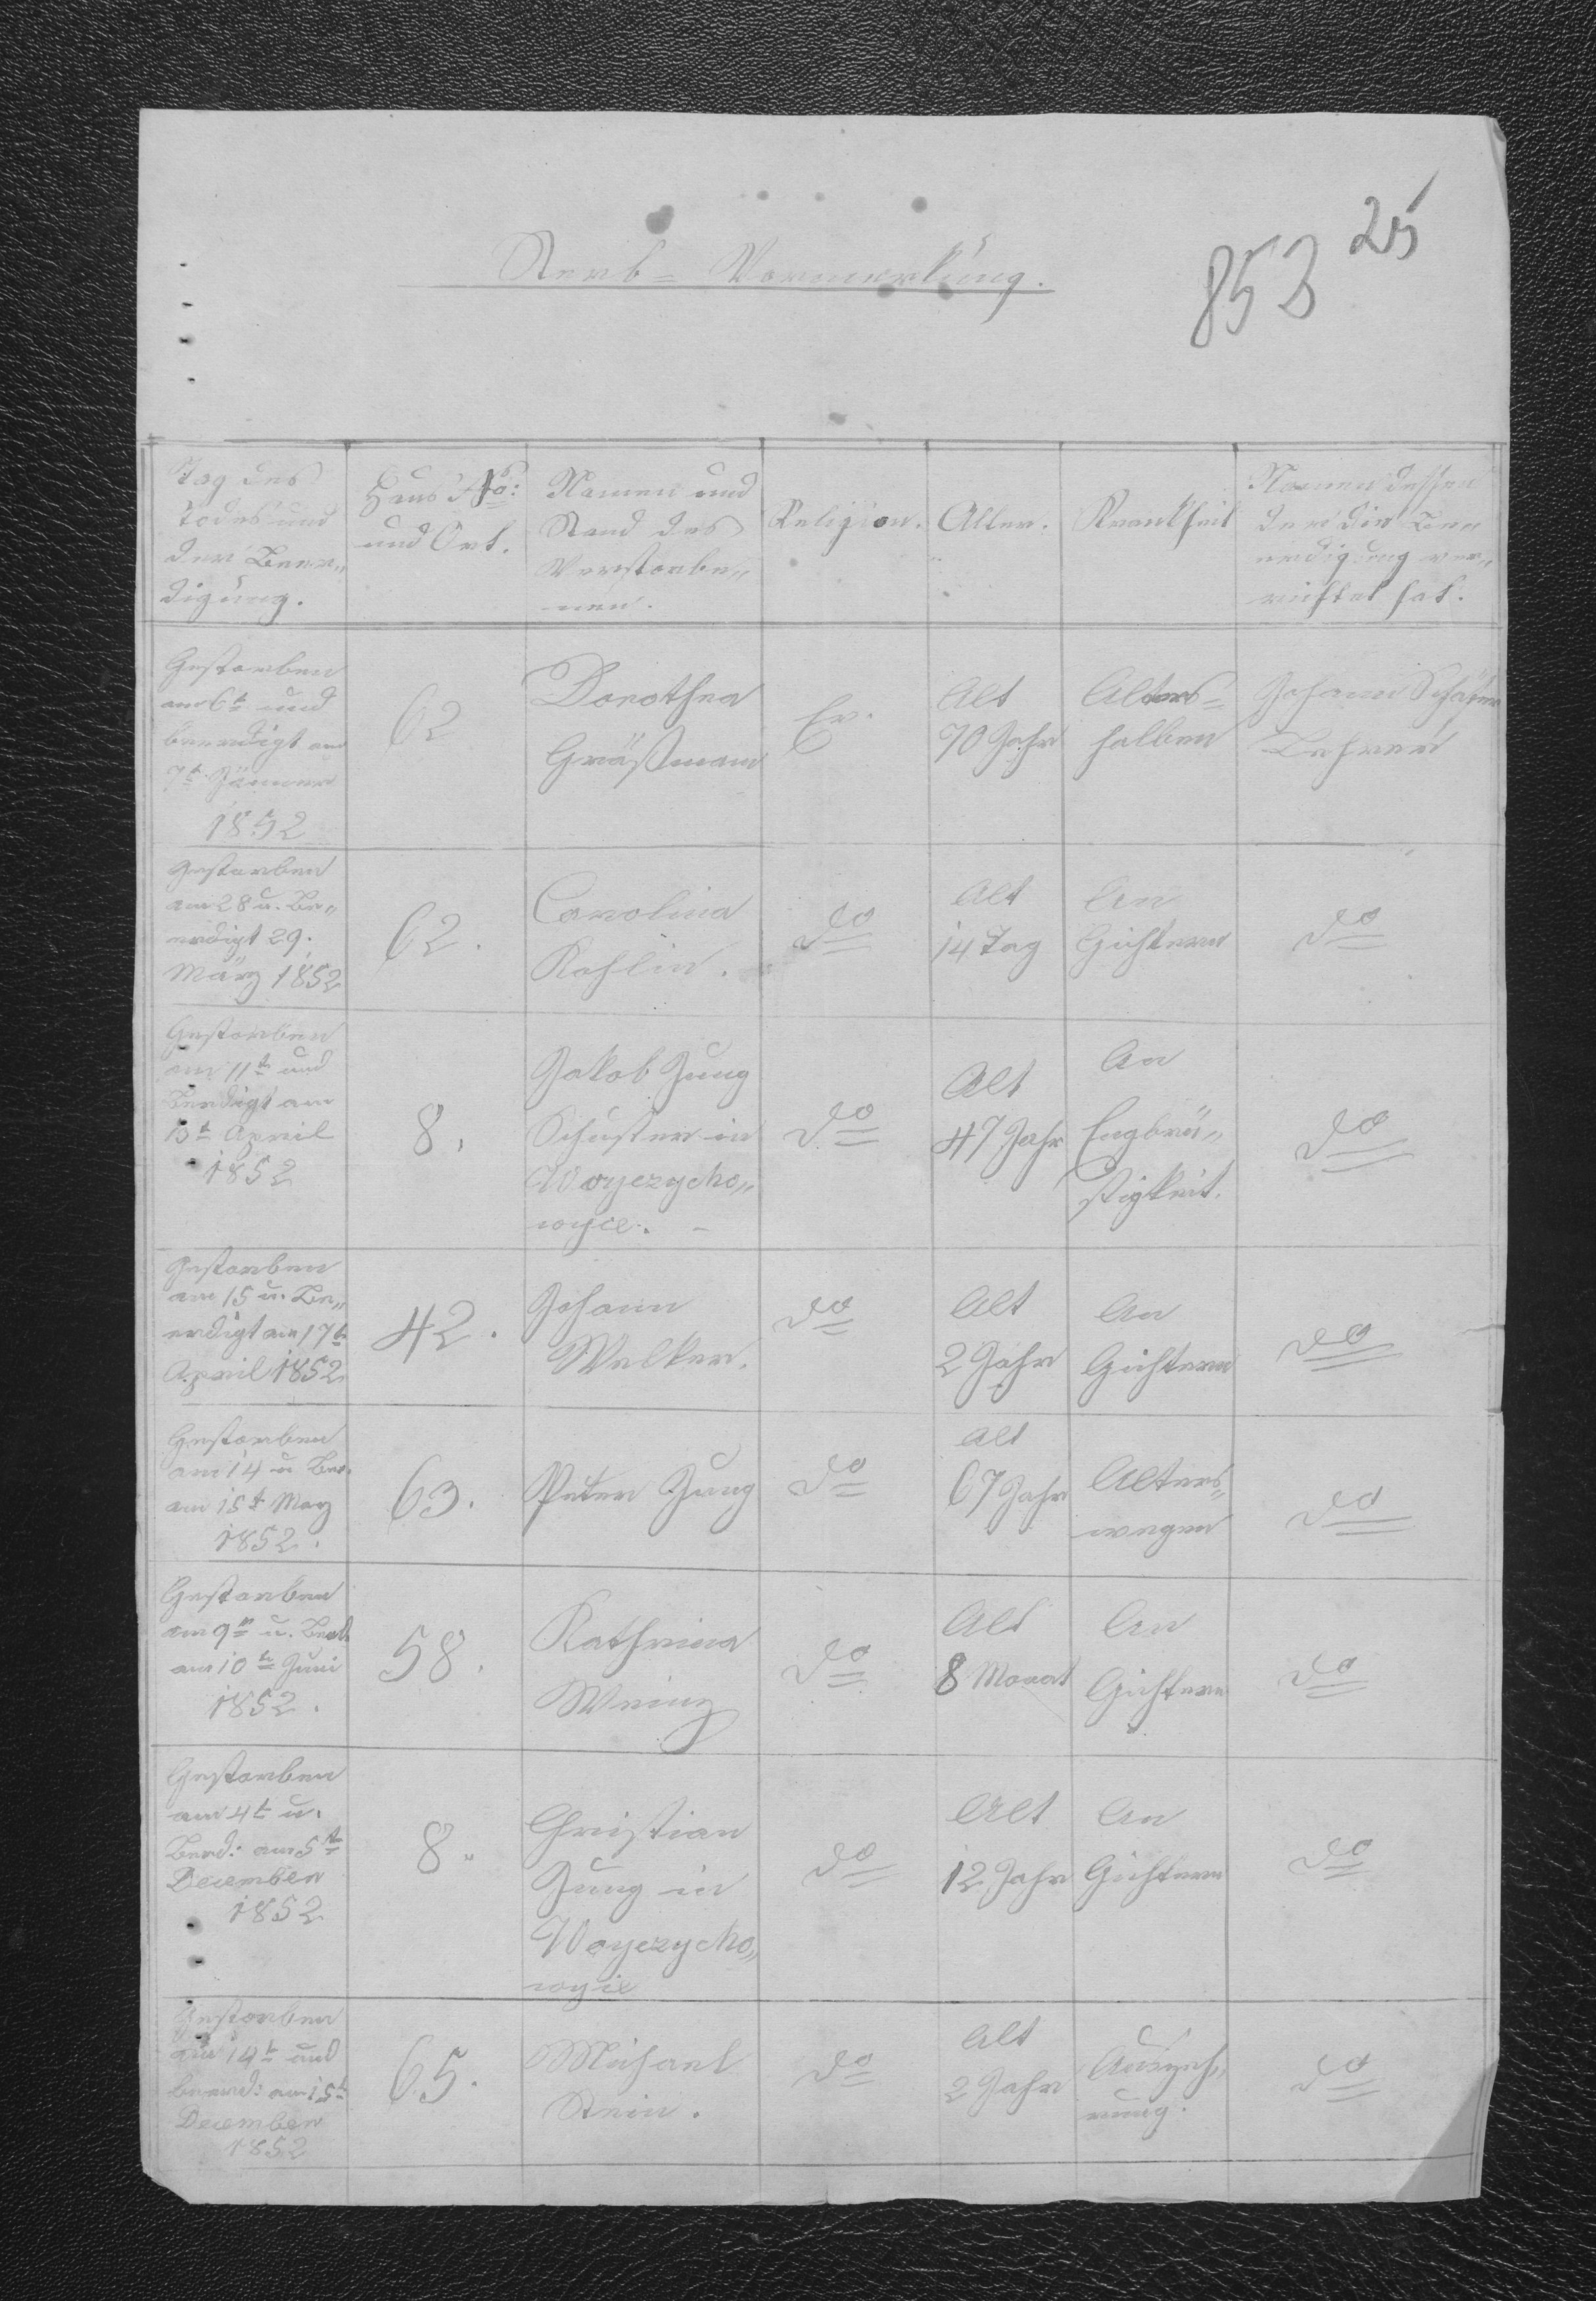 25
853
Sterb= Vormerkung.
Tag des
Todes und
der Beer„
digung.
Haus No:
und Ort.
Namen und
Stand des
Verstorbe„
nen.
Religion.
Alter.
Krankheit
Namen dessen
der die Be„
erdigung ver„
richtet hat.
Gestorben
am 6t und
beerdigt am
7t Jänner
1852
62
Dorothea
Gräßmann
Ev.
Alt
70 Jahr
Alters=
halben
Johann Schäfer
Lehrer
Gestorben
am 28 u. Be„
erdigt 29.
März 1852
62.
Carolina
Kohlin.
do
Alt
14 Tag
An
Gichtern
do
Gestorben
am 11t und
Beerdigt am
13t April
1852
8.
Jakob Jung
Schuster in
Woyczycho„
wyce.
do
Alt
47 Jahr
An
Engbrü„
stigkeit.
do
Gestorben
am 15 u. Be„
erdigt am 17t
April 1852
42.
Johann
Welker.
do
Alt
2 Jahr
An
Gichtern
do
Gestorben
am 14 u Bee.
am 15t May
1852.
63.
Peter Jung
do
Alt
67 Jahr
Alters„
wegen
do
Gestorben
am 9n u. Beed.
am 10n Juni
1852.
58.
Kathrina
Weinz
do
Alt
8 Monat
An
Gichtern
do
Gestorben
am 4t u.
Beerd: am 5tn
December
1852
8.
Christian
Jung in
Woyczycho„
wyie
do
Alt
12 Jahr
An
Gichtern
do
Gestorben
am 14t und
beerd: am 15t
December
1852
65.
Michael
Stein.
do
Alt
2 Jahr
Auszeh„
rung.
do